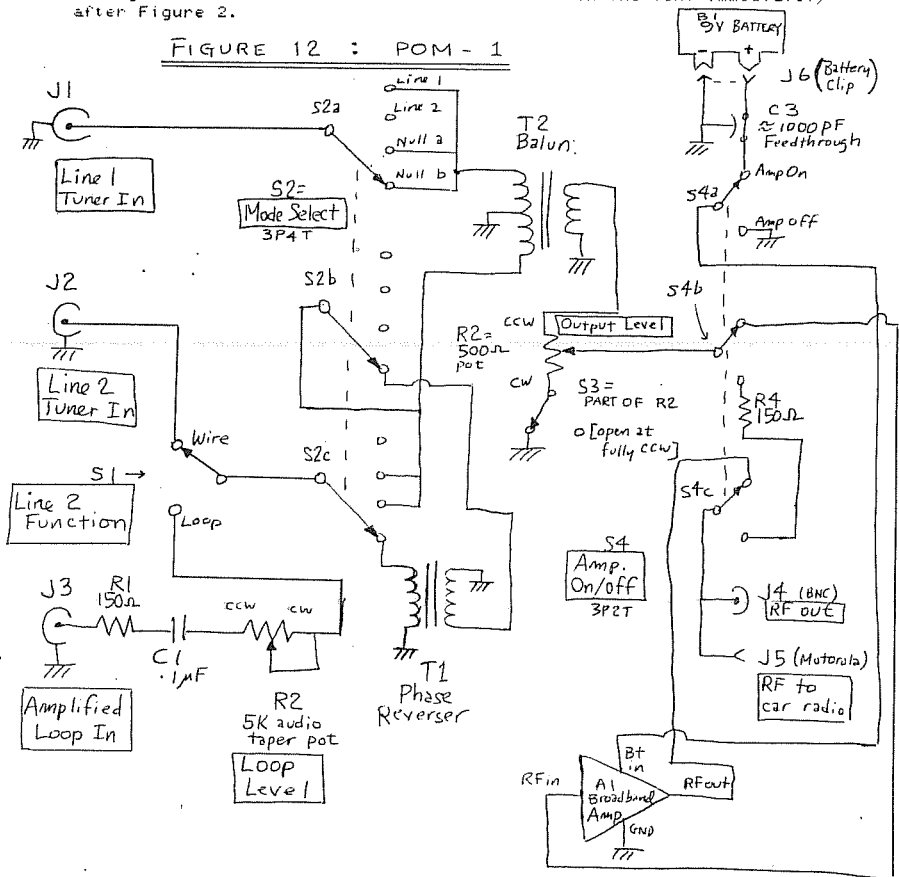 after Figure 2.
FIGURE 12 : POM-1
B1
9V BATTERY
- +
J6 (Battery
Clip
C3
≈1000 pF
Feedthrough
J1
Line 1
Tuner In
S2a
Line 1
Line 2
Null a
Null b
S2=
Mode Select
3P4T
T2
Balun
Amp On
S4a
Amp off
J2
Line 2
Tuner In
S2b
S4b
CCW
Output Level
R2=
500Ω
pot
CW
S3=
PART OF R2
[open at
fully CCW]
R4
150Ω
Wire
S1 →
Line 2
Function
Loop
S2c
S4c
S4
Amp.
On/off
3P2T
J4 (BNC)
RF OUT
J5 (Motorola)
RF to
car radio
J3
R1
150Ω
C1
.1µF
CCW CW
R2
5K audio
taper pot
Loop
Level
Amplified
Loop In
T1
Phase
Reverser
B+
in
RFin
A1
Broadband
Amp
RFout
GND